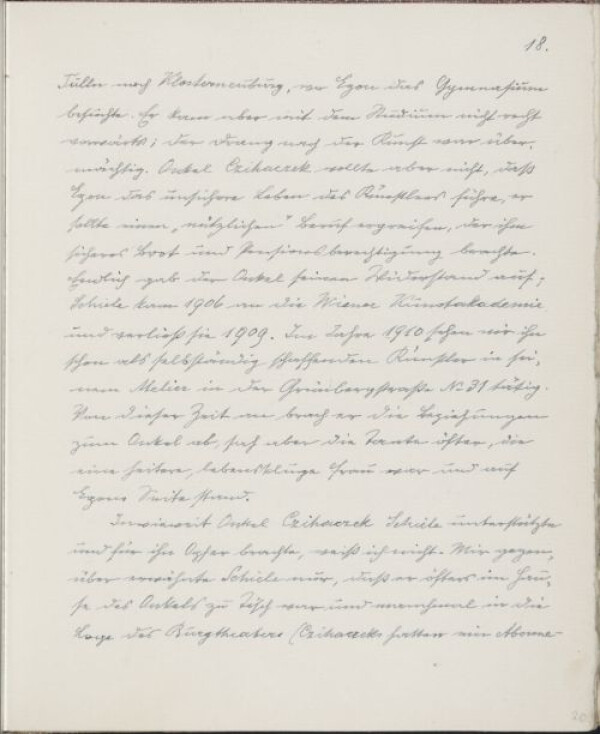 18.
Tulln nach Klosterneuburg, wo Egon das Gymnasium
besuchte. Er kam aber mit dem Studium nicht recht
vorwärts; der Drang nach der Kunst war über-
mächtig. Onkel Czihaczek wollte aber nicht, daß
Egon das unsichere Leben des Künstlers führe, er
sollte einen „nützlichen" Beruf ergreifen, der ihm
sicheres Brot und Pensionsberechtigung brachte.
Endlich gab der Onkel seinen Widerstand auf;
Schiele kam 1906 an die Wiener Kunstakademie
und verließ sie 1909. Im Jahre 1910 sehen wir ihn
schon als selbständig schaffenden Künstler in sei-
nem Atelier in der Grünbergstraße No 31 tätig.
Von dieser Zeit an brach er die Beziehungen
zum Onkel ab, sah aber die Tante öfter, die
eine heitere, lebenskluge Frau war und auf
Egons Seite stand.
Inwieweit Onkel Czihaczek Schiele unterstützte
und für ihn Opfer brachte, weiß ich nicht. Mir gegen-
über erwähnte Schiele nur, daß er öfters im Hau-
se des Onkels zu Tisch war und manchmal in die
Loge des Burgtheaters (Czihaczeks hatten ein Abonne-
20